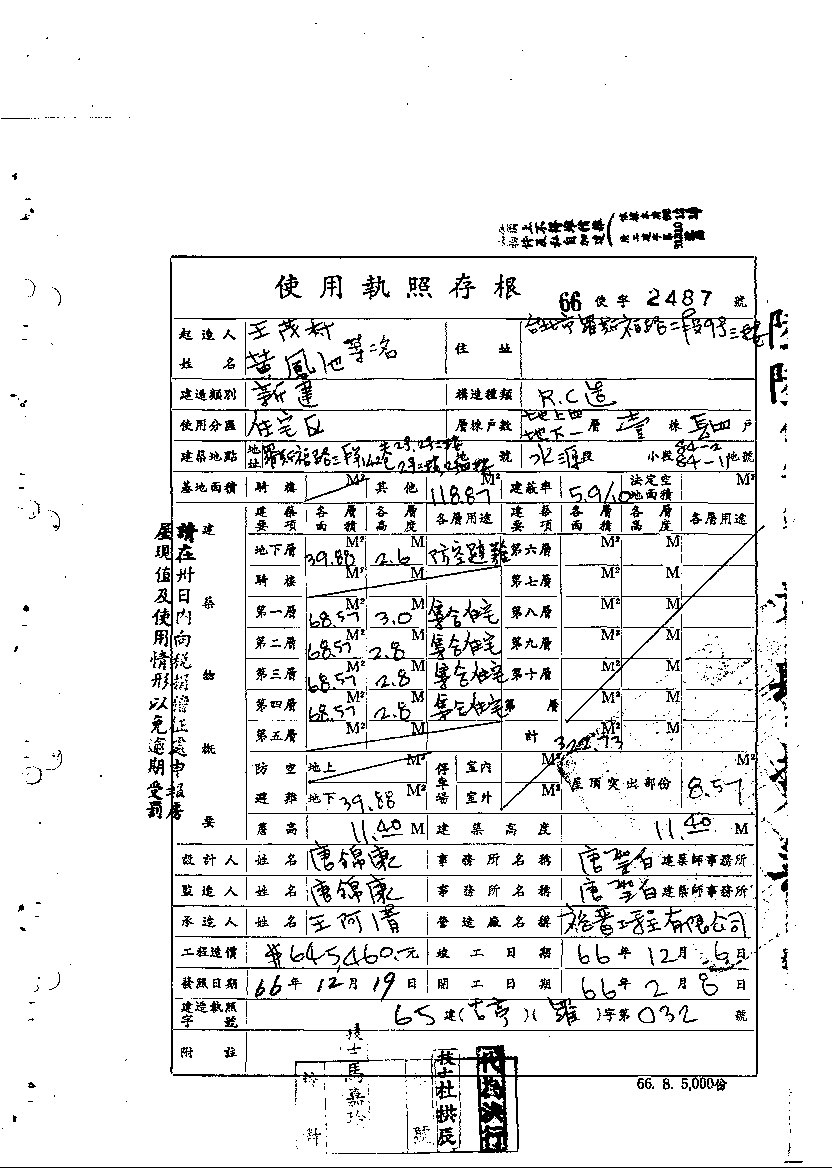 使用執照存根
66 使字 2487 號
起造人姓名 王茂村 黃鳳池等二名 住址
建造類別 新建 構造種類 R.C造
使用分區 住宅區 層棟戶數 地上四 地下一 層 壹 棟 戶
建築地點 地址 地號 水源段 小段 84-2 84-1 地號
基地面積 騎樓 M² 其他 118.87 M² 建蔽率 5.9/10 法定空地面積 M²
建築物概要
建築要項 各層面積 各層高度 各層用途 建築要項 各層面積 各層高度 各層用途
地下層 39.88 M² 2.6 M 防空避難 第六層 M² M
騎樓 M² M 第七層 M² M
第一層 68.57 M² 3.0 M 集合住宅 第八層 M² M
第二層 68.57 M² 2.8 M 集合住宅 第九層 M² M
第三層 68.57 M² 2.8 M 集合住宅 第十層 M² M
第四層 68.57 M² 2.8 M 集合住宅 第 層 M² M
第五層 M² M 計 M² M
防空避難 地上 M² 停車場 室內 M² 屋頂突出部份 8.57 M²
地下 39.88 M² 室外 M²
簷高 11.40 M 建築高度 11.40 M
設計人 姓名 唐錦康 事務所名稱 建築師事務所
監造人 姓名 唐錦康 事務所名稱 建築師事務所
承造人 姓名 營造廠名稱 工程有限公司
工程造價 $645,460.元 竣工日期 66年12月6日
發照日期 66年12月19日 開工日期 66年2月8日
建造執照字號 65建(古亭)(羅)字第032號
附註
請在卅日內向稅捐稽征處申報房
屋現值及使用情形以免逾期受罰
技士馬嘉玲
技士杜拱辰
代為決行
66. 8. 5,000份